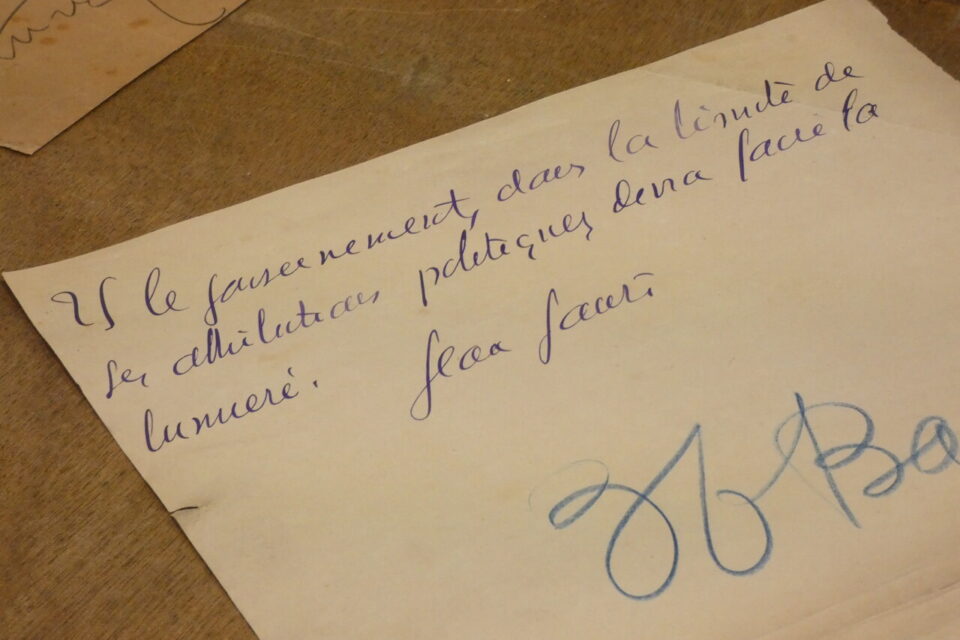 Et le gouvernement, dans la limite de
ses attributions politiques devra faire la
lumière. Jean Jaurès
Ba